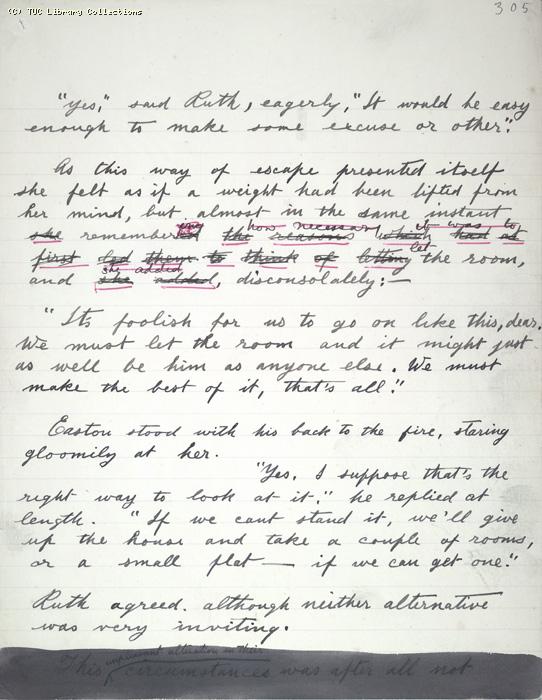 (C) TUC Library Collections
305
"Yes," said Ruth, eagerly, "It would be easy
enough to make some excuse or other."
As this way of escape presented itself
she felt as if a weight had been lifted from
her mind, but almost in the same instant
ing how necessary it was to
she remembered the reasons which had at
let
first led them to think of letting the room,
she added
and she added, disconsolately:—
"Its foolish for us to go on like this, dear.
We must let the room and it might just
as well be him as anyone else. We must
make the best of it, that's all."
Easton stood with his back to the fire, staring
gloomily at her.
"Yes. I suppose that's the
right way to look at it." he replied at
length. "If we cant stand it, we'll give
up the house and take a couple of rooms,
or a small flat — if we can get one."
Ruth agreed. although neither alternative
was very inviting.
alteration in their
This circumstances was after all not